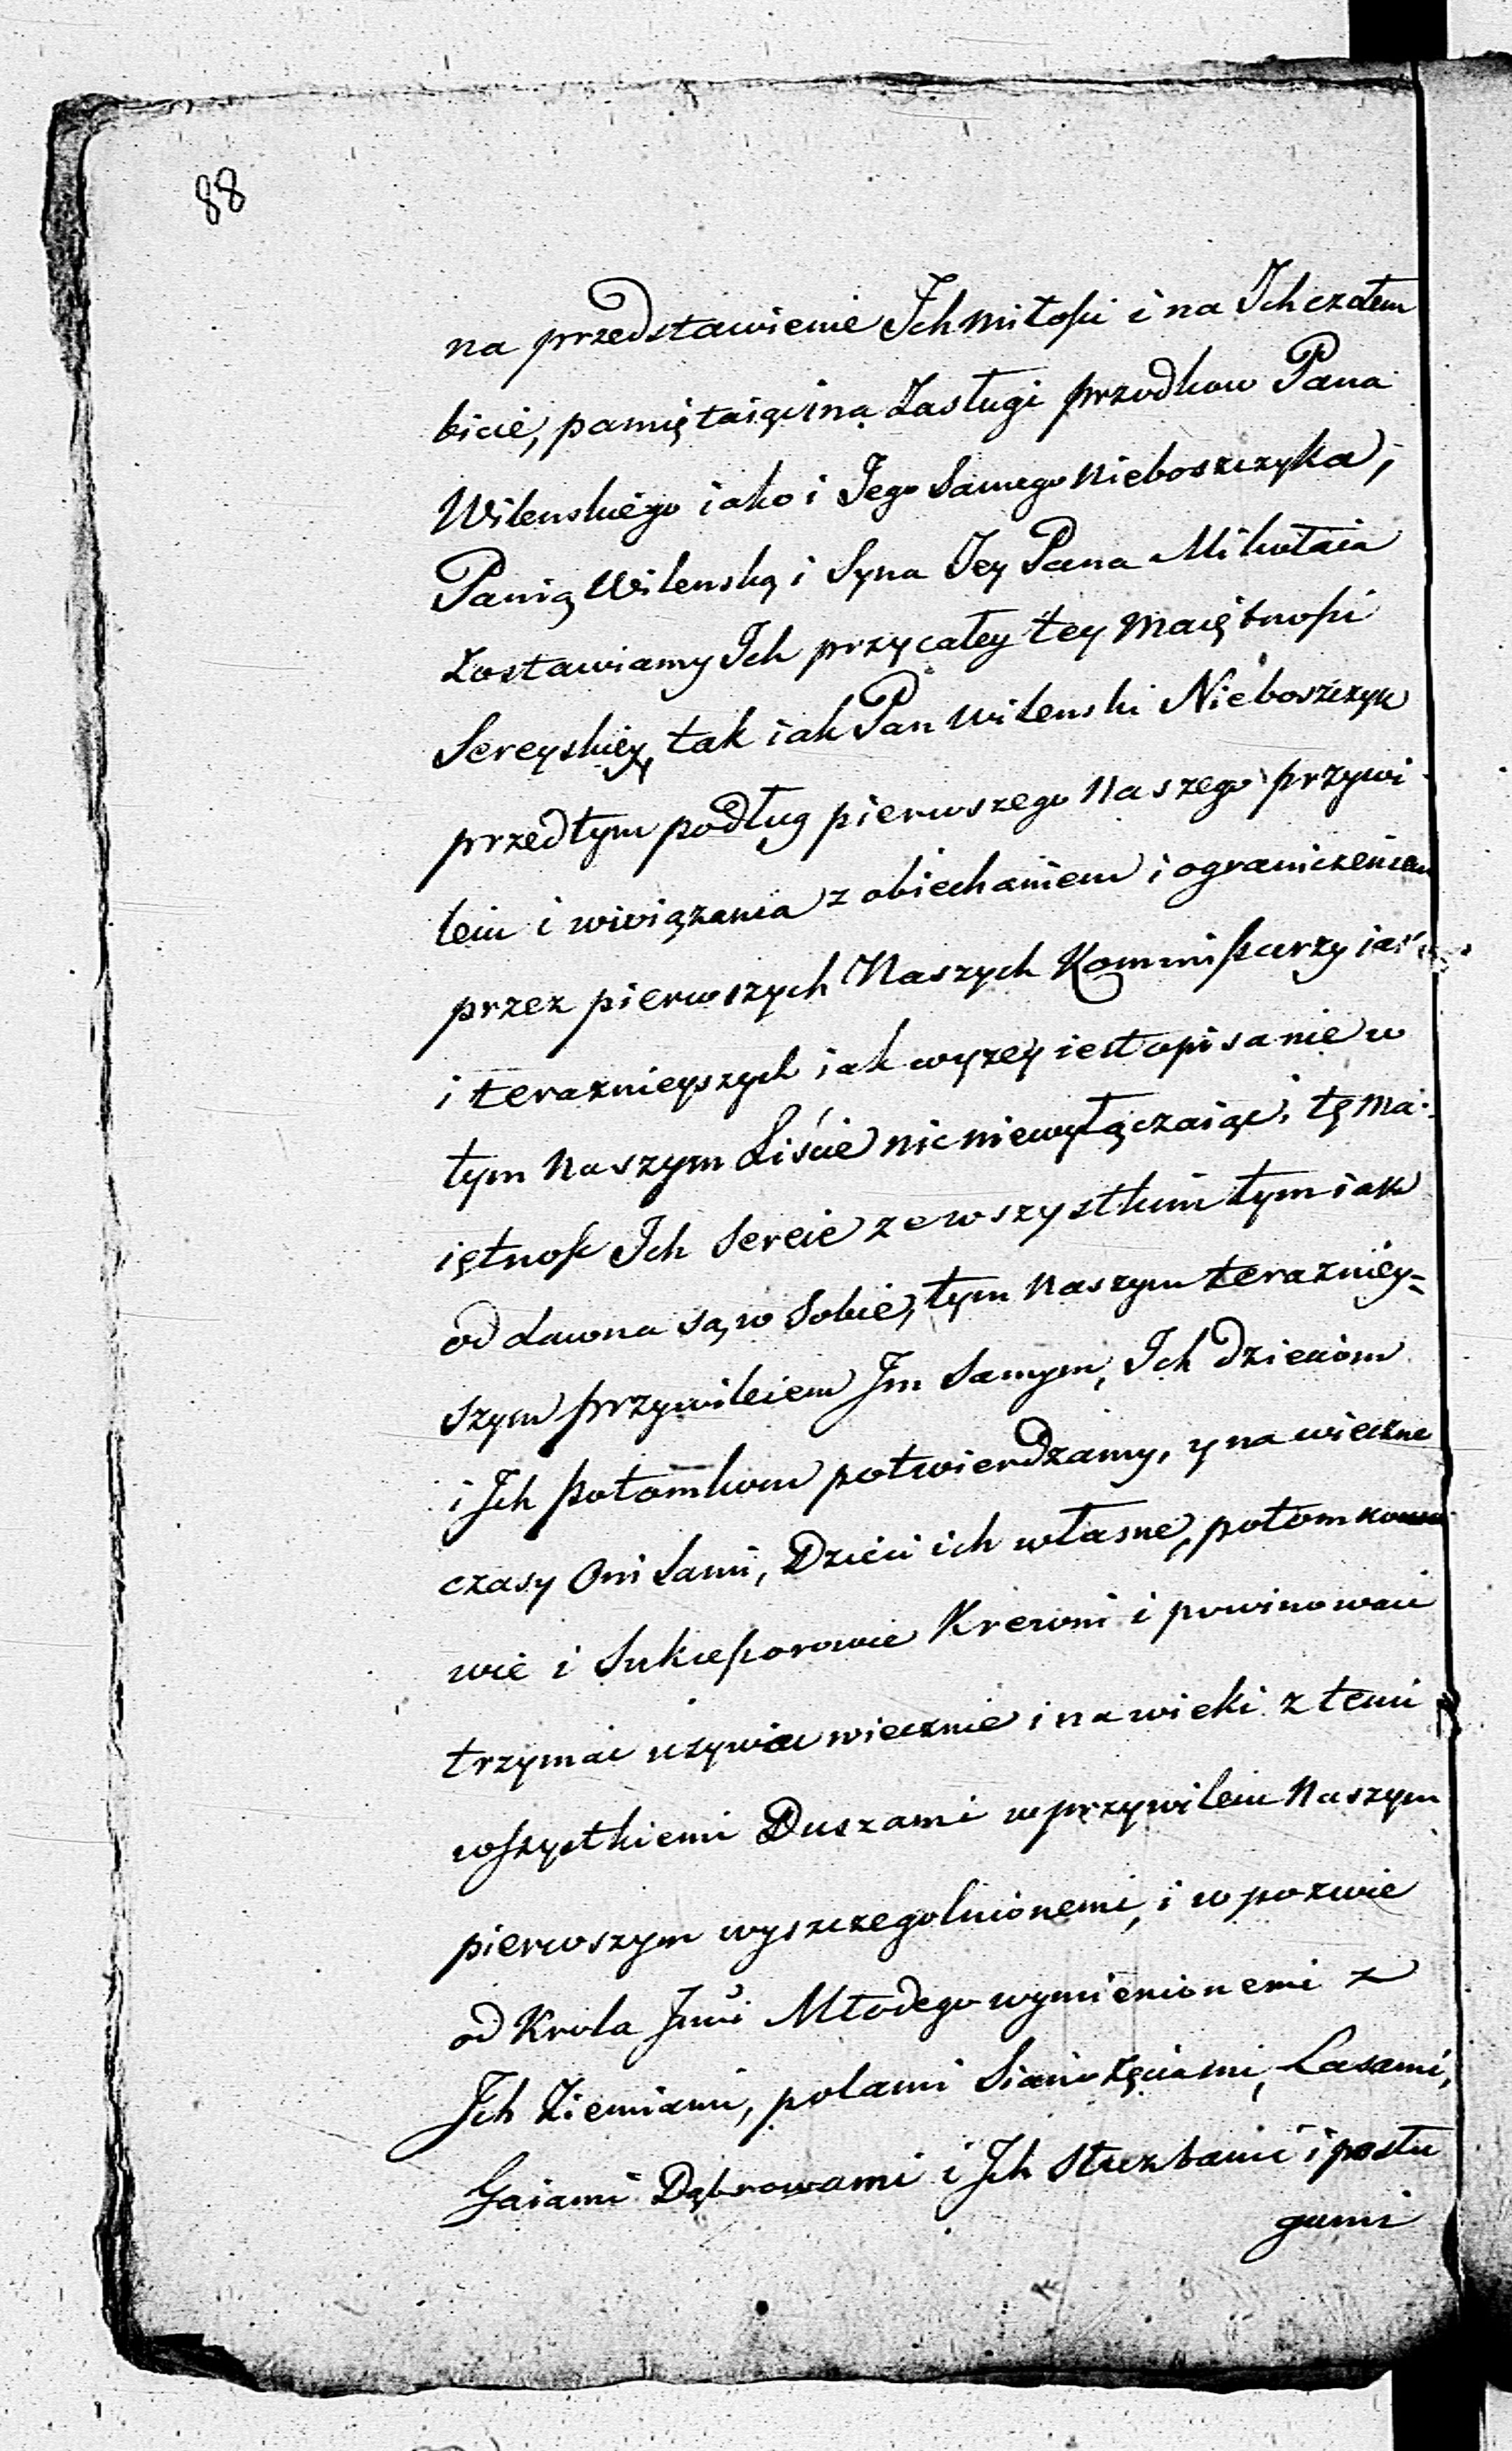 88
na przedstawienie Ich miłości i na Ich czołem
bicie, pamiętaiąc i na Zasługi przodkow Pana
Wilenskiego iako i Jego Samego Nieboszczyka,
Panią Wilenską i Syna Jey Pana Mikołaia
Zostawiamy Ich przy całey tey Maiętności
Sereyskiey, tak iak Pan Wilenski Nieboszczyk
przedtym podług pierwszego Naszego przywi
leiu i wwiązania z obiechaniem i ograniczeniem
przez pierwszych Naszych Kommissarzy
i teraznieyszych iak wyzey iest opisanie w
tym Naszym Liście nic niewyłączaiąc, tę Ma-
iętność Ich Sereie ze wszystkim tym iak
od dawna są w Sobie, tym Naszym terazniey=
szym przywileiem Im Samym, Ich dzieciom
i Ich potomkom potwierdzamy, y na wieczne
czasy Oni Sami, Dzieci ich własne, potomko
wie i Sukcessorowie Krewni i powinowaci
trzymać uzywać wiecznie i na wieki z temi
wszystkiemi Duszami w przywileiu Naszym
pierwszym wyszczegolnionemi, i w pozwie
od Krola Jmci Młodego wymienionemi z
Ich Ziemiami, polami Sianożęciami, Lasami,
Gaiami Dąbrowami i Ich Słuzbami i posłu
gami